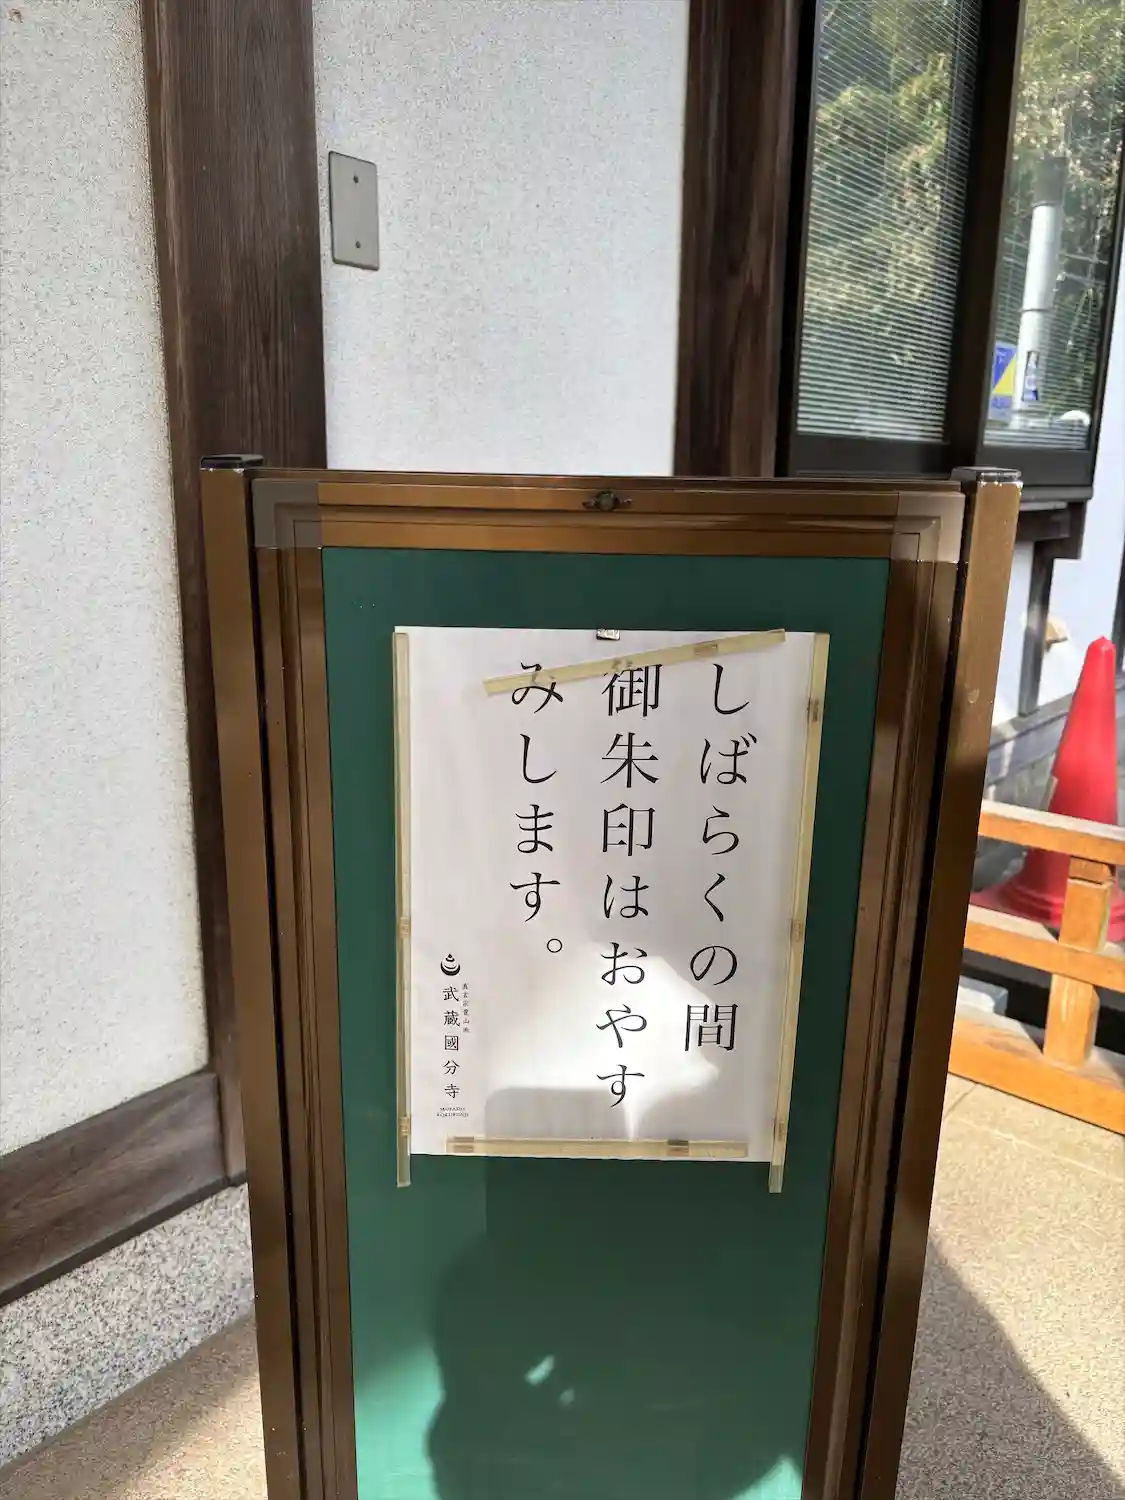 しばらくの間
御朱印はおやす
みします。
真言宗豊山派
武蔵國分寺
MUSASHI
KOKUBUNJI